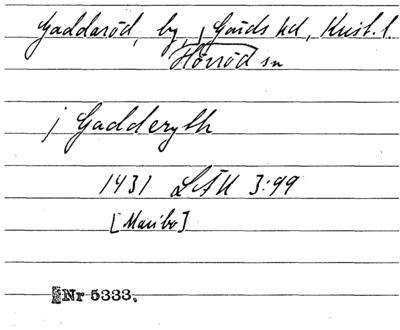 Gaddaröd, by, i Gärds hd, Krist. l.
Hörröd sn
i Gadderyth
1431 LÄU 3:99
[Maribo]
Nr 5333.